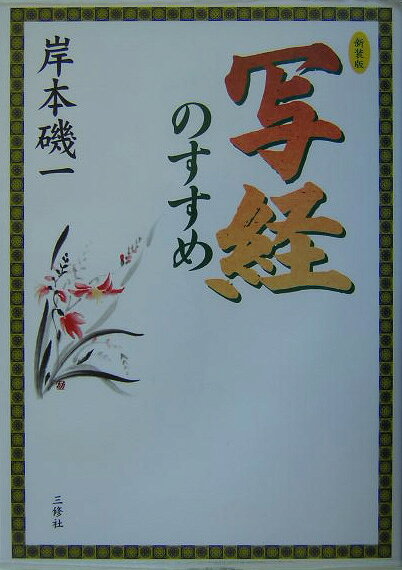 新装版
写経
のすすめ
岸本磯一
三修社